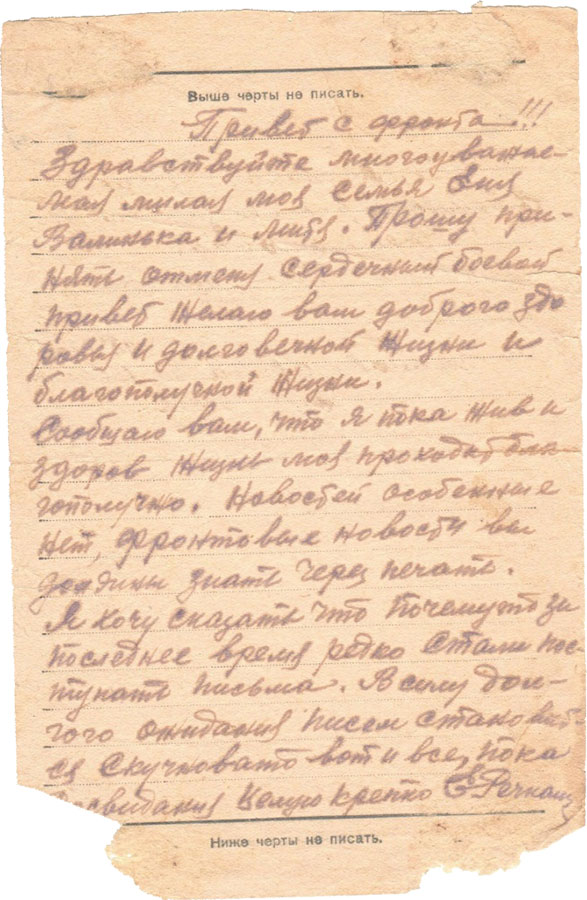 Выше черты не писать.
Привет с фронта!!!
Здравствуйте многоуважае-
мая милая моя семья Еня
Валинька и митя. Прошу при-
нять отменя сердечный боевой
привет желаю вам доброго здо
ровья и долговечной жизни и
благополучной жизни.
Сообщаю вам, что я пока жив и
здоров жизнь моя проходит бла-
гополучно. Новостей особенные
нет, фронтовые новости вы
должны знать через печать.
Я хочу сказать что почемуто за
последнее время редко стали пос-
тупать письма. В силу дол-
гого ожидания писем становит
ся скучновато вот и все, пока
досвидания целую крепко
Ниже черты не писать.